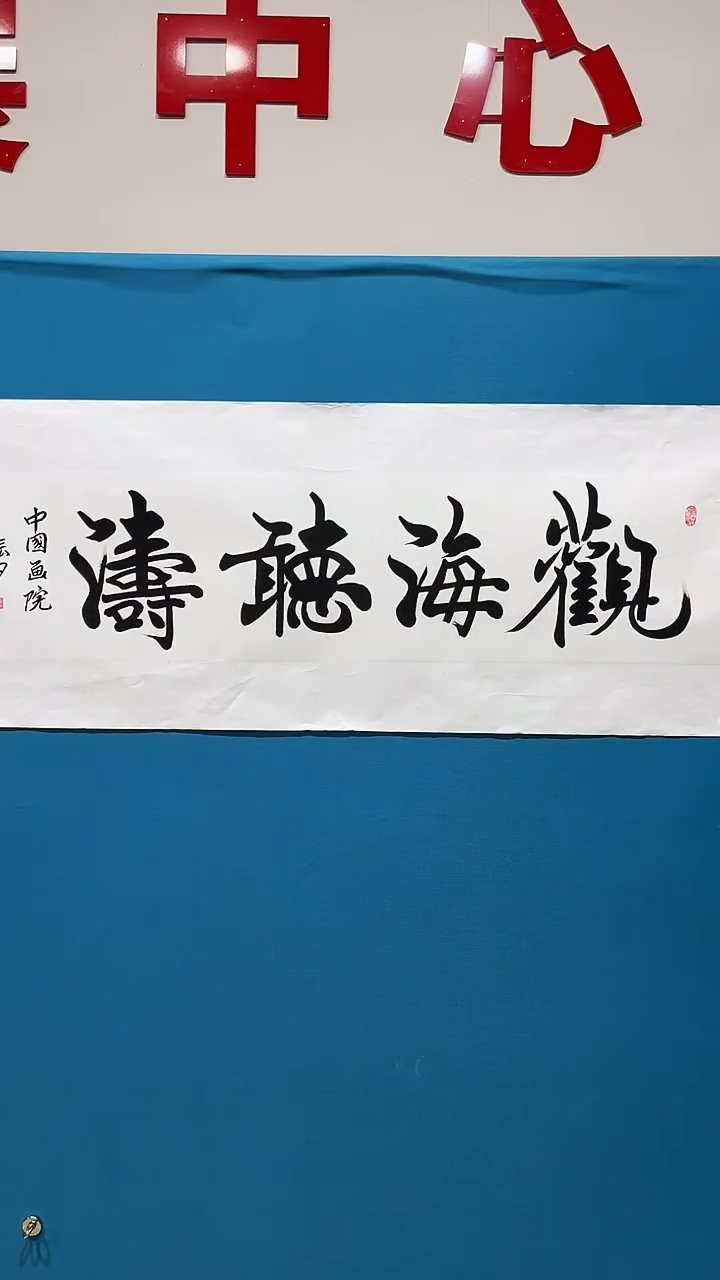 中心
觀海聽濤
中國画院